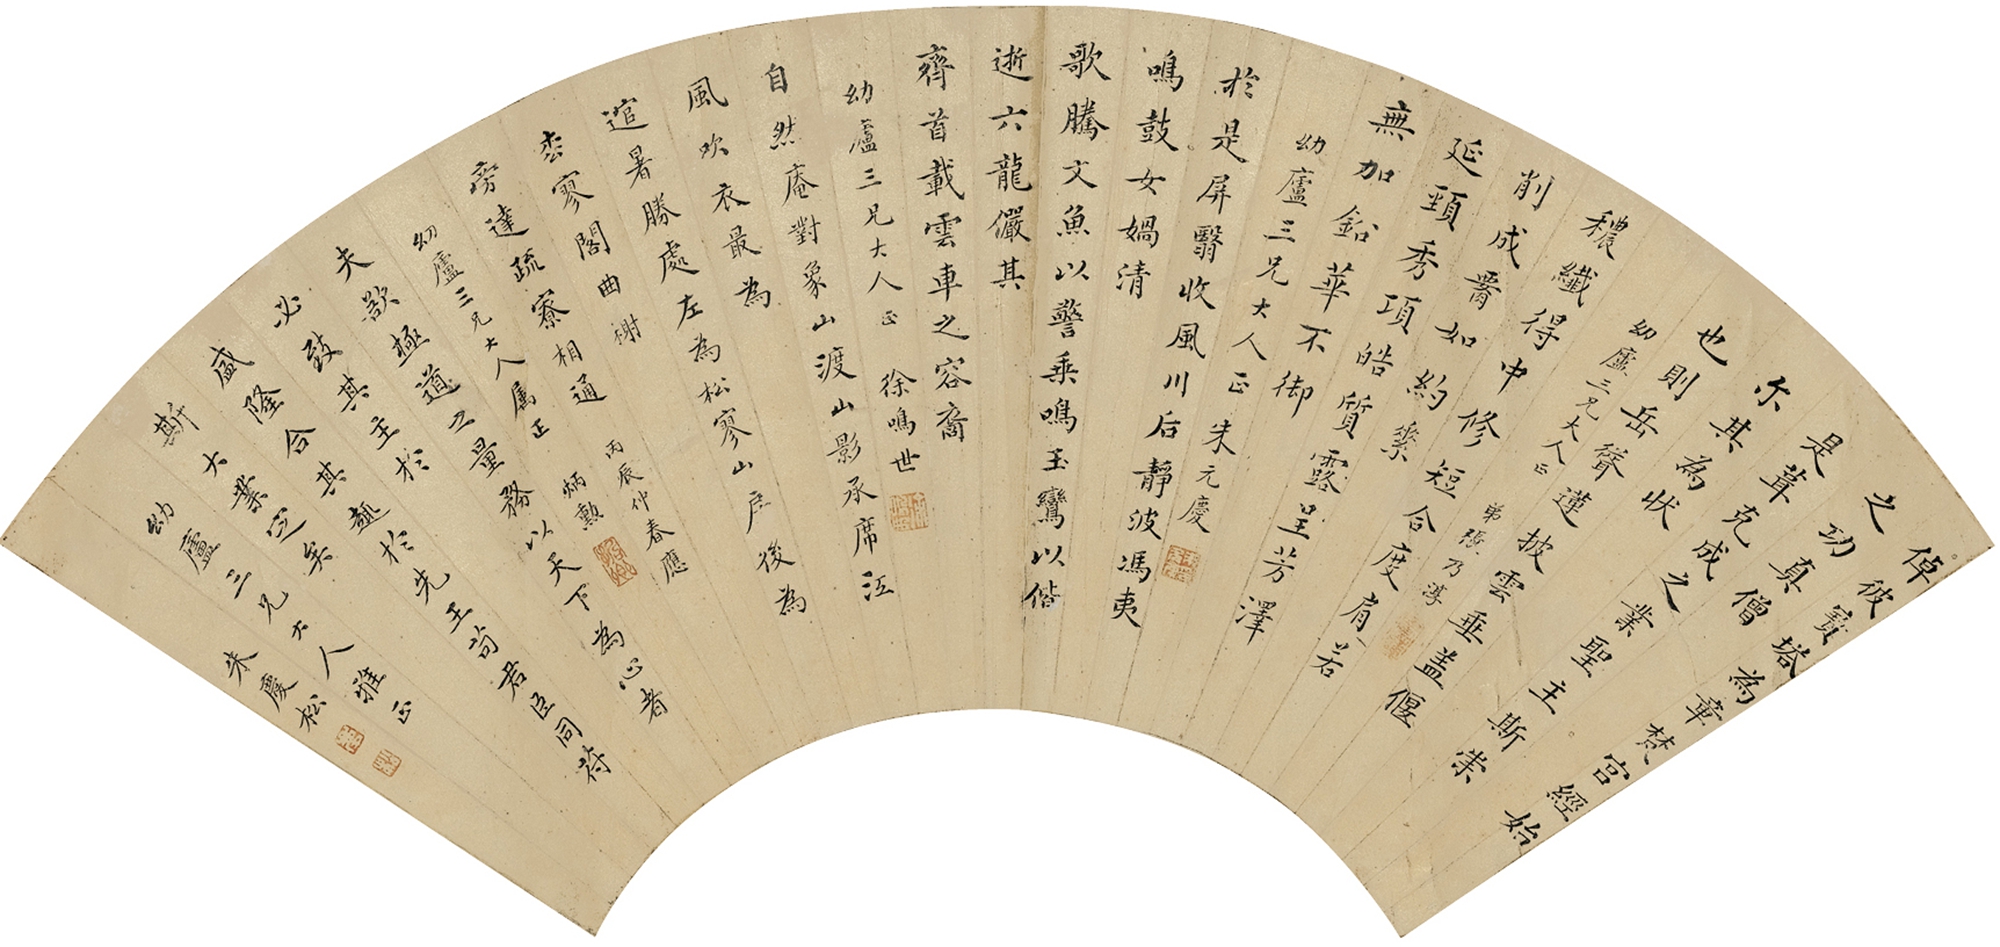 倬彼寶塔為章梵宮經始
之功真僧
是葺克成之業聖主斯崇
尒其為状
也則岳聳蓮披雲垂盖偃
幼廬三兄大人正 弟張乃淳
穠纖得中修短合度肩若
削成腰如約素
延頸秀項皓質露呈芳澤
無加鉛華不御
幼廬三兄大人正 朱元慶
於是屏翳收風川后靜波馮夷
鳴鼓女媧清
歌騰文魚以警乘鳴玉鸞以偕
逝六龍儼其
齊首載雲車之容裔
幼廬三兄大人正 徐鳴世
自然庵對象山渡山影承席江
風吹衣最為
逭暑勝處左為松寥山房後為
枩寥閣曲榭
旁達疏寮相通
丙辰仲春應
幼廬三兄大人属正 炳勳
夫欲極道之量務以天下為心者
必致其主於
盛隆合其趣於先王苟君臣同符
斯大業定矣
幼廬三兄大人雅正
朱慶松